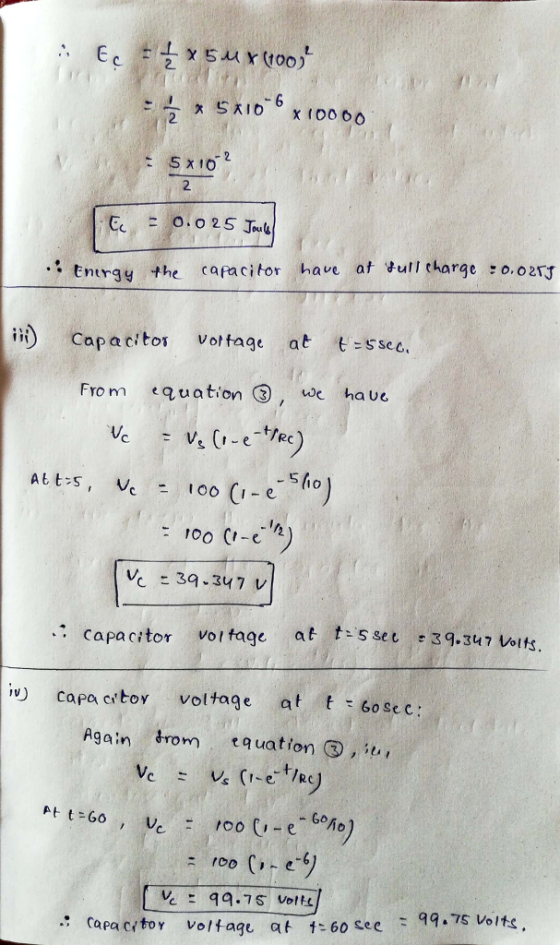 ∴ Ec = 1/2 × 5μ × (100)²
= 1/2 × 5×10⁻⁶ × 10000
= 5×10⁻² / 2
Ec = 0.025 Jouls
∴ Energy the capacitor have at full charge = 0.025J
iii) Capacitor voltage at t=5sec.
From equation ③, we have
Vc = Vs (1-e^-t/RC)
At t=5, Vc = 100 (1-e^-5/10)
= 100 (1-e^-1/2)
Vc = 39.347 V
∴ capacitor voltage at t=5 sec = 39.347 Volts.
iv) capacitor voltage at t = 60sec:
Again from equation ③, i.e.,
Vc = Vs (1-e^-t/RC)
At t=60, Vc = 100 (1-e^-60/10)
= 100 (1-e^-6)
Vc = 99.75 Volts
∴ capacitor voltage at t=60 sec = 99.75 Volts.